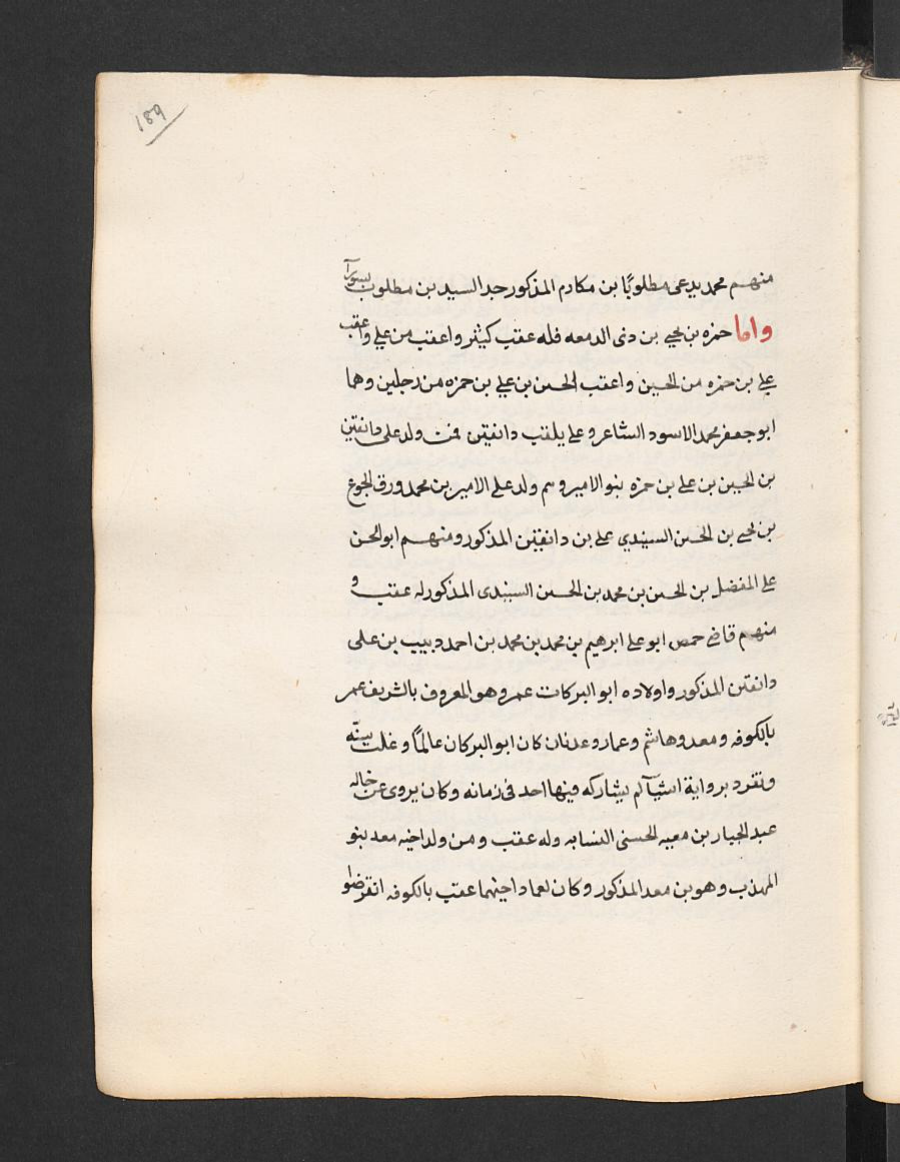 189
منهم محمد يدعى مطلوبًا بن مكارم المذكور جد السيد بن مطلوب بسورآ
واما حمزه بن يحيى بن ذى الدمعه فله عقب كثير واعقب من على واعقب
على بن حمزه من الحسين واعقب الحسن بن على بن حمزه من رجلين وهما
ابو جعفر محمد الاسود الشاعر وعلى يلقب دانفتين فمن ولد على دانفتين
بن الحسين بن على بن حمزه بنو الامير وهم ولد على الامير بن محمد ورق الجوع
بن يحيى بن الحسن السيندى على بن دانفتين المذكور ومنهم ابو الحسن
على المفضل بن الحسن بن محمد بن الحسن السيندى المذكور له عقب و
منهم قاضى حمص ابو على ابرهيم بن محمد بن محمد بن احمد دبيب بن على
دانفتن المذكور واولاده ابو البركات عمر وهو المعروف بالشريف عمر
بالكوفه ومعد وهاشم وعمار وعدنان كان ابو البركان عالمًا وغلت سنّه
وتفرد برواية اشيآ لم يشاركه فيها احد فى زمانه وكان يروى عن خاله
عبد الجبار بن معيه الحسنى النسابه وله عقب ومن ولد اخيه معد بنو
المهذب وهو بن معد المذكور وكان لعماد اخيهما عقب بالكوفه انقرضوا